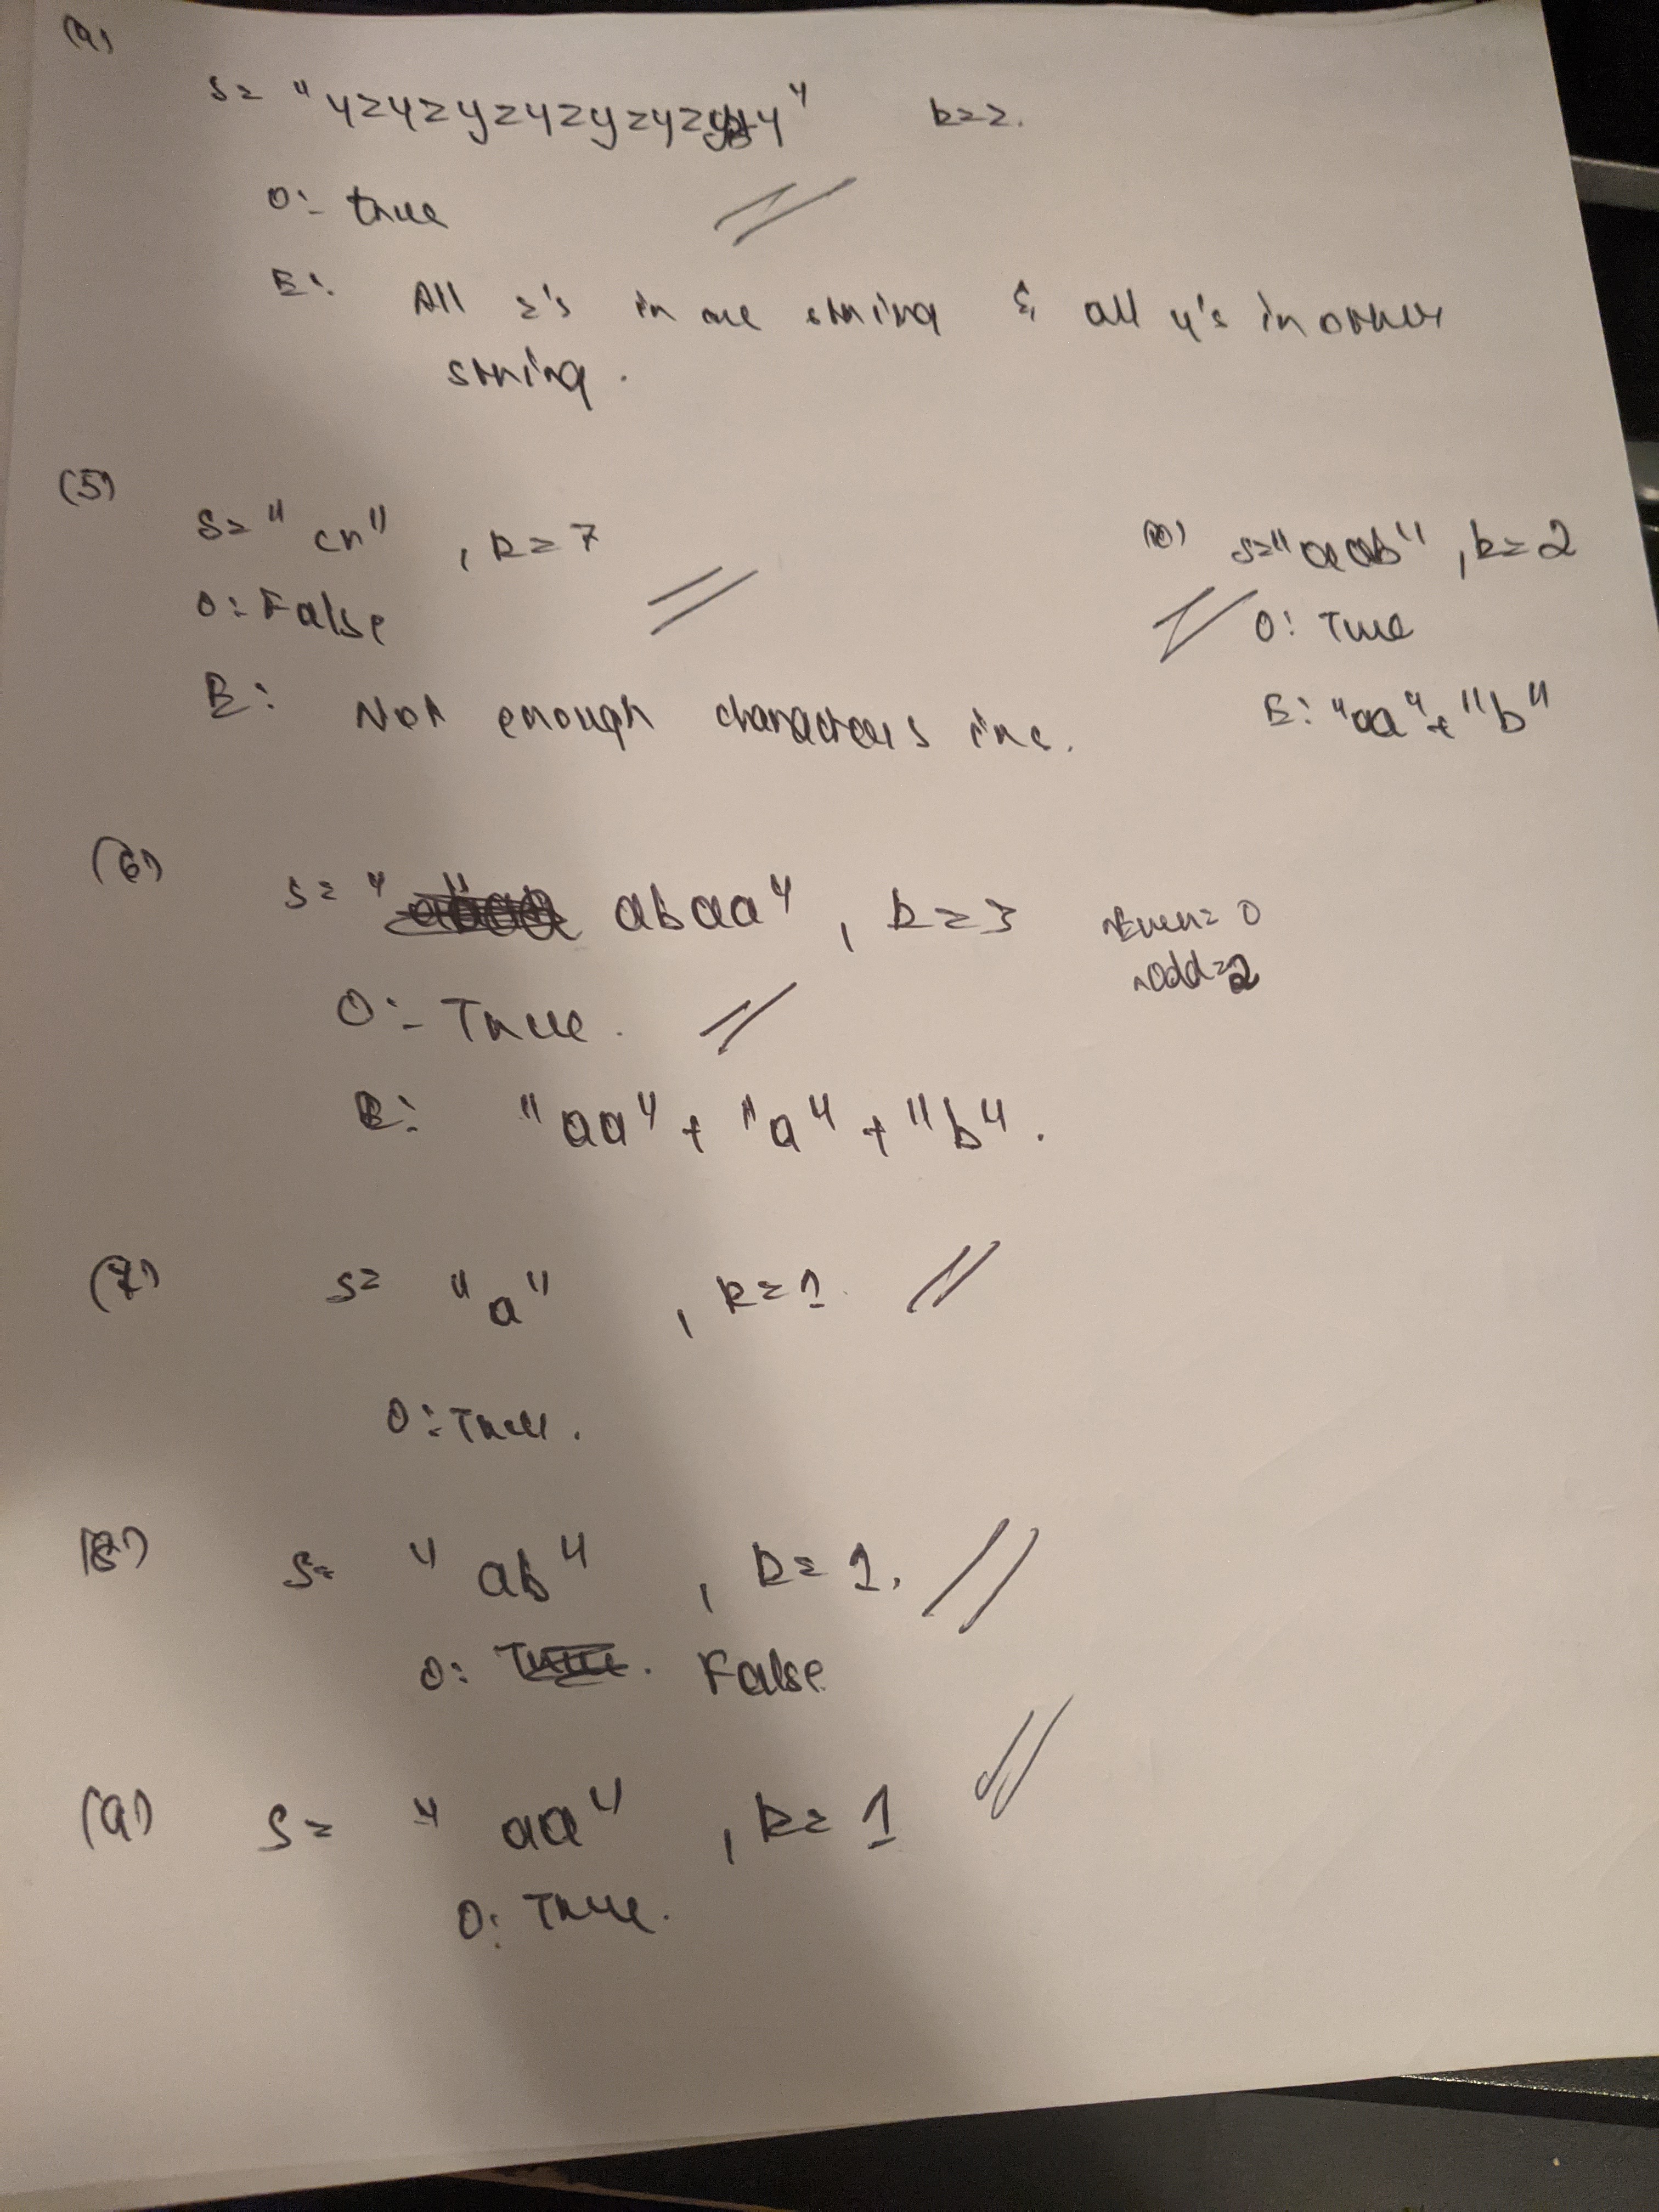 (4)
s = "yzyzyzyzyzyzyzy" k=2.
O:- true
E:. All z's in one string & all y's in other
string.
(5)
s= "cn" , k=7
O:- False
E: Not enough characters in s.
(10) s="aab" , k=2
O: True
E: "aa" + "b"
(6)
s= " abaa" , k=3
nEven= 0
nOdd=2
O:- True.
E: "aa" + "a" + "b".
(7) s= "a" , k=1.
O:- True.
(8) s= "ab" , k=1.
O: False
(9) s= "aa" , k=1
O: True.